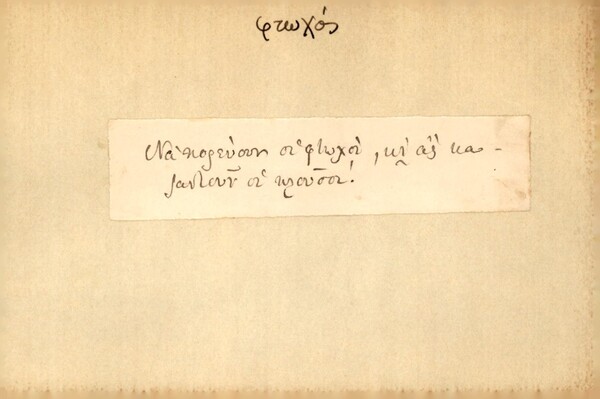 φτωχός
Νὰ πορεύουν οἱ φτωχοὶ, κῂ ἂς κα-
ζαντοῦν οἱ πλοῦσοι!